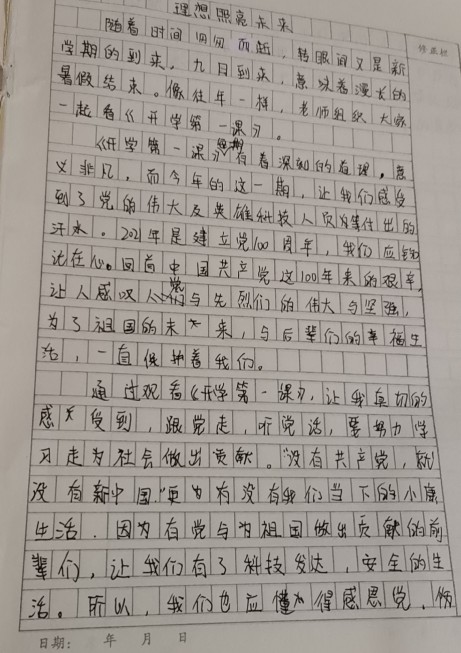 理想照亮未来
随着时间匆匆而逝，转眼间又是新
学期的到来，九日到来，意味着漫长的
暑假结束。像往年一样，老师组织大家
一起看《开学第一课》。
《开学第一课》每期有着深刻的道理，意
义非凡，而今年的这一期，让我们感受
到了党的伟大及英雄科技人员为等付出的
汗水。2021年是建立党100周年，我们应铭
记在心。回首中国共产党这100年来的艰辛，
让人感叹人党们与先烈们的伟大与坚强，
为了祖国的未来，与后辈们的幸福生
活，一直保护着我们。
通过观看《开学第一课》，让我真切的
感受到，跟党走，听党话，要努力学
习走为社会做出贡献。"没有共产党，就
没有新中国"更为有没有我们当下的小康
生活．因为有党与为祖国做出贡献的前
辈们，让我们有了科技发达，安全的生
活。所以，我们也应懂得感恩党，
修正栏
日期： 年 月 日